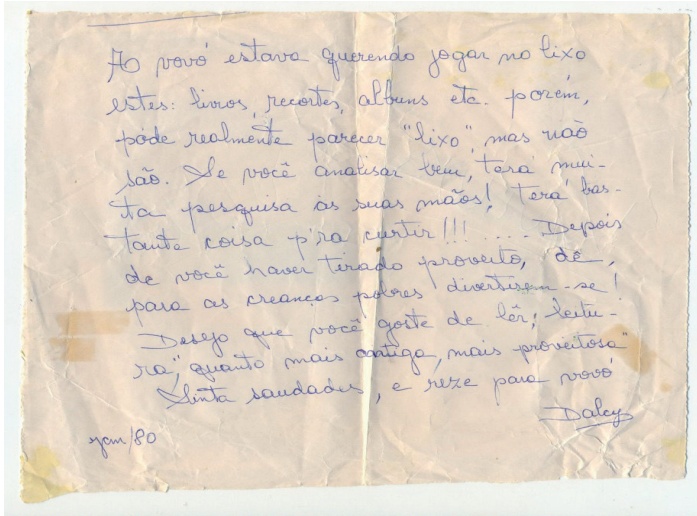 A vovó estava querendo jogar no lixo
estes: livros, recortes, albuns etc. porém,
póde realmente parecer "lixo", mas não
são. Se você analisar bem, terá mui-
ta pesquisa ás suas mãos! terá bas-
tante coisa p'ra curtir!!! .... Depois
de você haver tirado proveito, dê,
para as creanças pobres divertirem-se!
Desejo que você goste de lêr; leitu-
ra, "quanto mais antiga, mais proveitosa"
Sinta saudades, e reze para vovó
Dalcy
jan/80